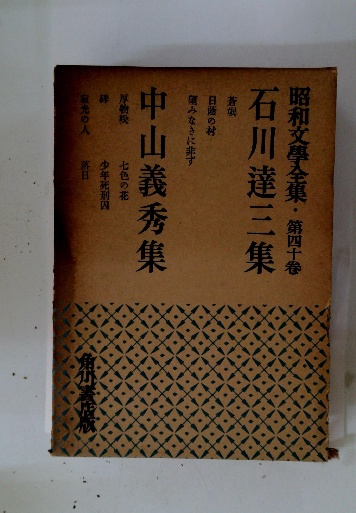 昭和文學全集・第四十卷
石川達三集
蒼氓
日蔭の村
望みなきに非ず
中山義秀集
厚物咲 七色の花
碑 少年死刑囚
寂光の人 落日
角川書店版